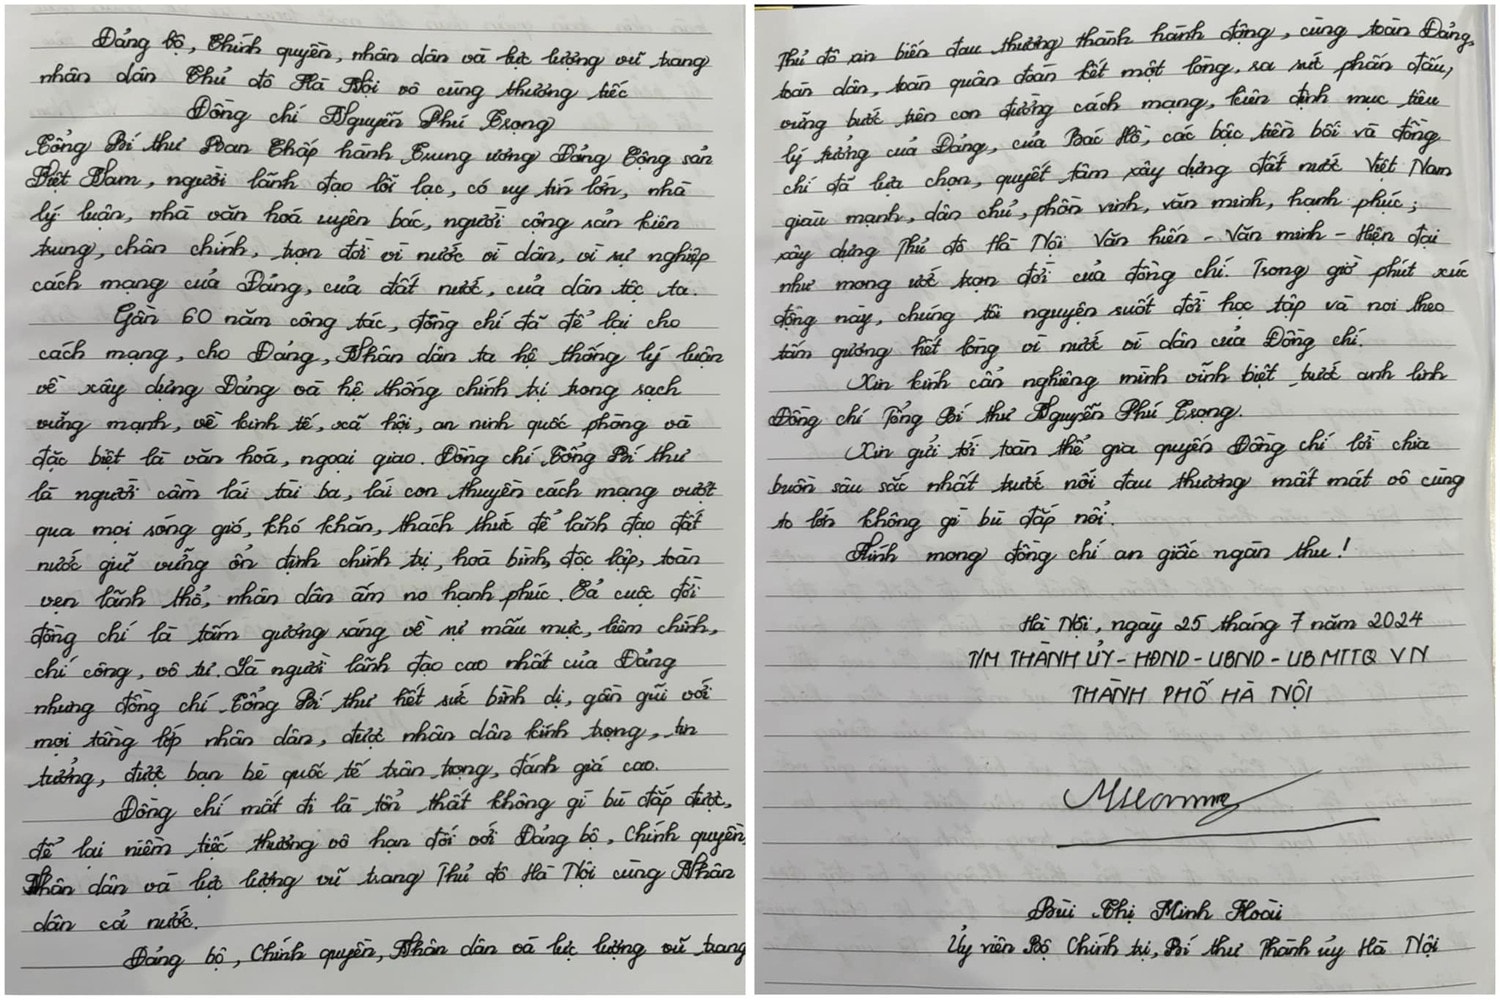 Đảng bộ, Chính quyền, nhân dân và lực lượng vũ trang
nhân dân Thủ đô Hà Nội vô cùng thương tiếc
Đồng chí Nguyễn Phú Trọng
Tổng Bí thư Ban Chấp hành Trung ương Đảng Cộng sản
Việt Nam, người lãnh đạo lỗi lạc, có uy tín lớn, nhà
lý luận, nhà văn hoá uyên bác, người cộng sản kiên
trung, chân chính, trọn đời vì nước vì dân, vì sự nghiệp
cách mạng của Đảng, của đất nước, của dân tộc ta.
Gần 60 năm công tác, đồng chí đã để lại cho
cách mạng, cho Đảng, Nhân dân ta hệ thống lý luận
về xây dựng Đảng và hệ thống chính trị trong sạch
vững mạnh, về kinh tế, xã hội, an ninh quốc phòng và
đặc biệt là văn hoá, ngoại giao. Đồng chí Tổng Bí thư
là người cầm lái tài ba, lái con thuyền cách mạng vượt
qua mọi sóng gió, khó khăn, thách thức để lãnh đạo đất
nước giữ vững ổn định chính trị, hoà bình, độc lập, toàn
vẹn lãnh thổ, nhân dân ấm no hạnh phúc. Cả cuộc đời
đồng chí là tấm gương sáng về sự mẫu mực, liêm chính,
chí công, vô tư. Là người lãnh đạo cao nhất của Đảng
nhưng đồng chí Tổng Bí thư hết sức bình dị, gần gũi với
mọi tầng lớp nhân dân, được nhân dân kính trọng, tin
tưởng, được bạn bè quốc tế trân trọng, đánh giá cao.
Đồng chí mất đi là tổn thất không gì bù đắp được,
để lại niềm tiếc thương vô hạn đối với Đảng bộ, Chính quyền,
Nhân dân và lực lượng vũ trang Thủ đô Hà Nội cùng Nhân
dân cả nước.
Đảng bộ, Chính quyền, Nhân dân và lực lượng vũ trang
Thủ đô xin biến đau thương thành hành động, cùng toàn Đảng,
toàn dân, toàn quân đoàn kết một lòng, ra sức phấn đấu,
vững bước trên con đường cách mạng, kiên định mục tiêu
lý tưởng của Đảng, của Bác Hồ, các bậc tiền bối và đồng
chí đã lựa chọn, quyết tâm xây dựng đất nước Việt Nam
giàu mạnh, dân chủ, phồn vinh, văn minh, hạnh phúc;
xây dựng Thủ đô Hà Nội Văn hiến - Văn minh - Hiện đại
như mong ước trọn đời của đồng chí. Trong giờ phút xúc
động này, chúng tôi nguyện suốt đời học tập và noi theo
tấm gương hết lòng vì nước vì dân của Đồng chí.
Xin kính cẩn nghiêng mình vĩnh biệt trước anh linh
Đồng chí Tổng Bí thư Nguyễn Phú Trọng.
Xin gửi tới toàn thể gia quyến Đồng chí lời chia
buồn sâu sắc nhất trước nỗi đau thương mất mát vô cùng
to lớn không gì bù đắp nổi.
Kính mong đồng chí an giấc ngàn thu!
Hà Nội, ngày 25 tháng 7 năm 2024
T/M THÀNH ỦY - HĐND - UBND - UB MTTQ VN
THÀNH PHỐ HÀ NỘI
Bùi Thị Minh Hoài
Ủy viên Bộ Chính trị, Bí thư Thành ủy Hà Nội